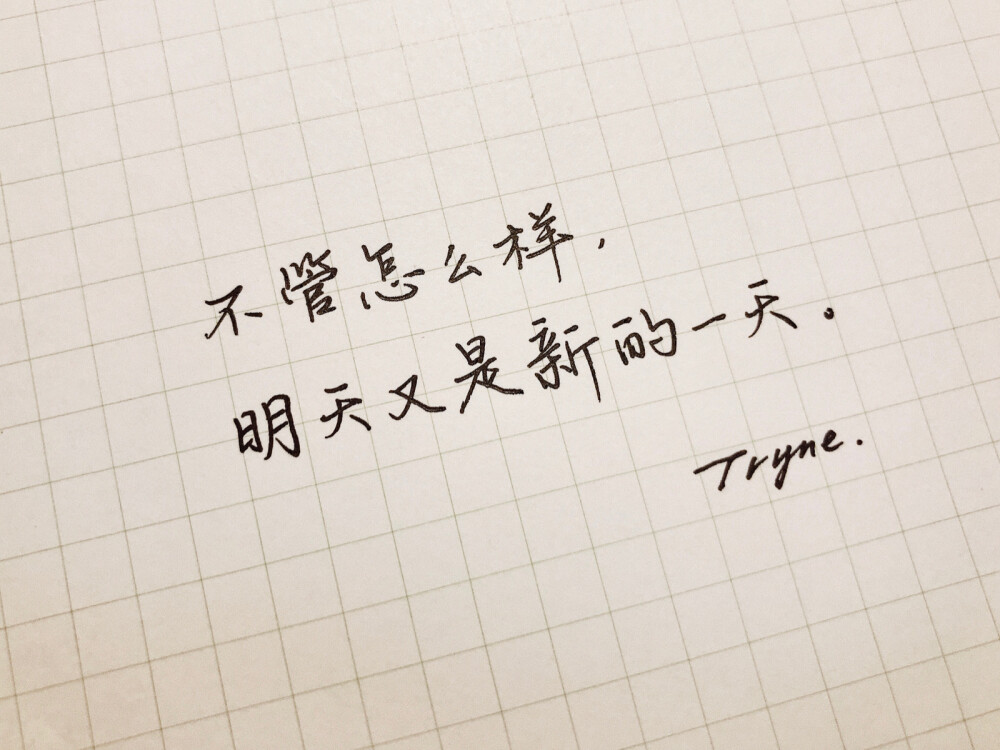 不管怎么样，
明天又是新的一天。
Tryne.